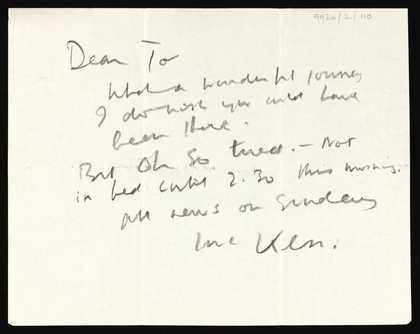 9920/2/110
Dear To
What a wonderful journey
I do wish you could have
been there.
But Oh So tired. – Not
in bed until 2.30 this morning.
All news on Sunday
love Ken.